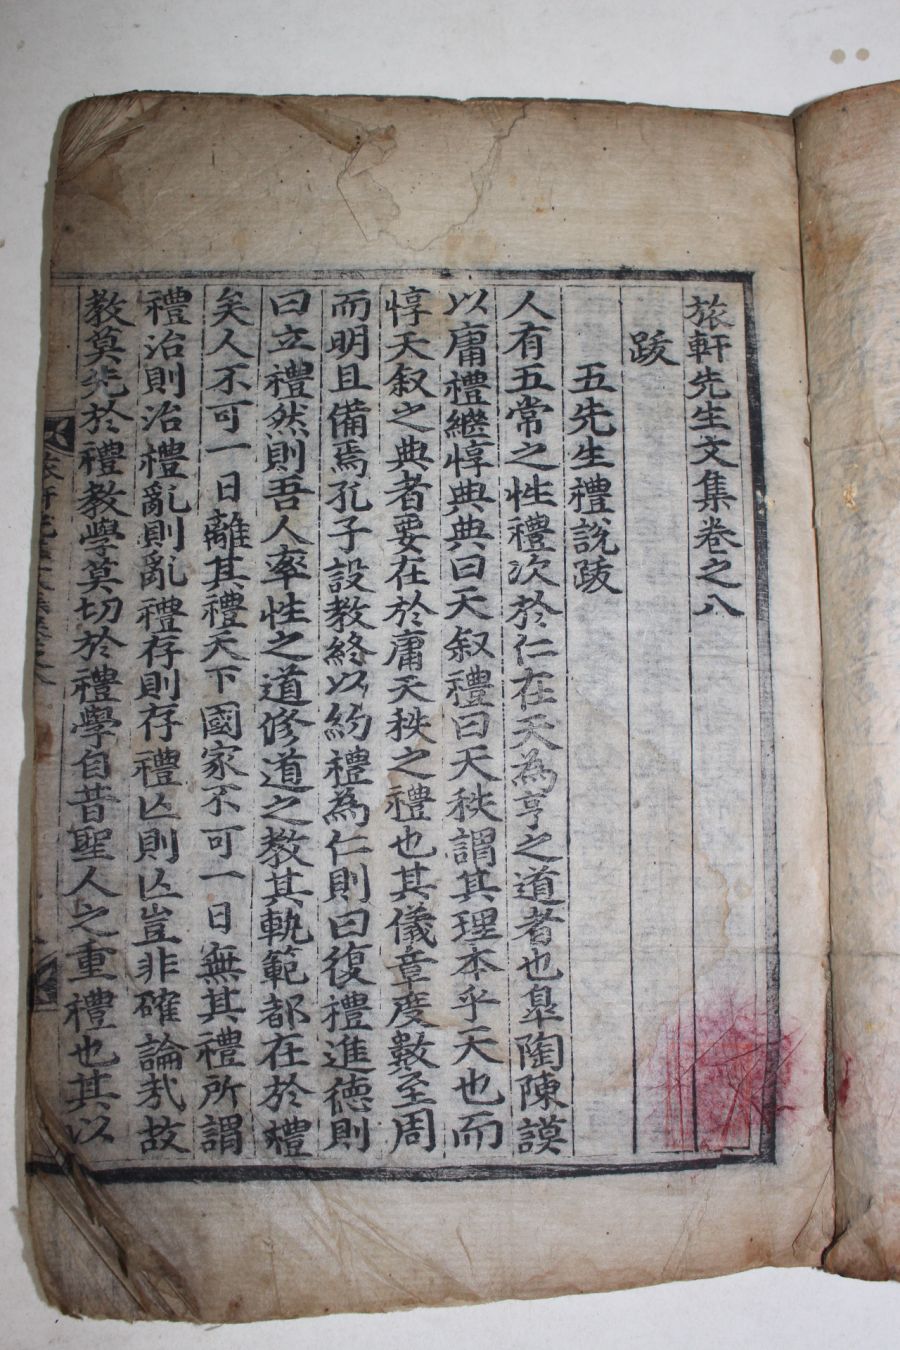 旅軒先生文集卷之八
跋
五先生禮說跋
人有五常之性禮次於仁在天為亨之道者也臯陶陳謨
以庸禮繼惇典典曰天叙禮曰天秩謂其理本乎天也而
惇天叙之典者要在於庸天秩之禮也其儀章度數至周
而明且備焉孔子設教終以約禮為仁則曰復禮進德則
曰立禮然則吾人率性之道修道之教其軌範都在於禮
矣人不可一日離其禮天下國家不可一日無其禮所謂
禮治則治禮亂則亂禮存則存禮亾則亾豈非確論㢤故
教莫先於禮教學莫切於禮學自昔聖人之重禮也其以